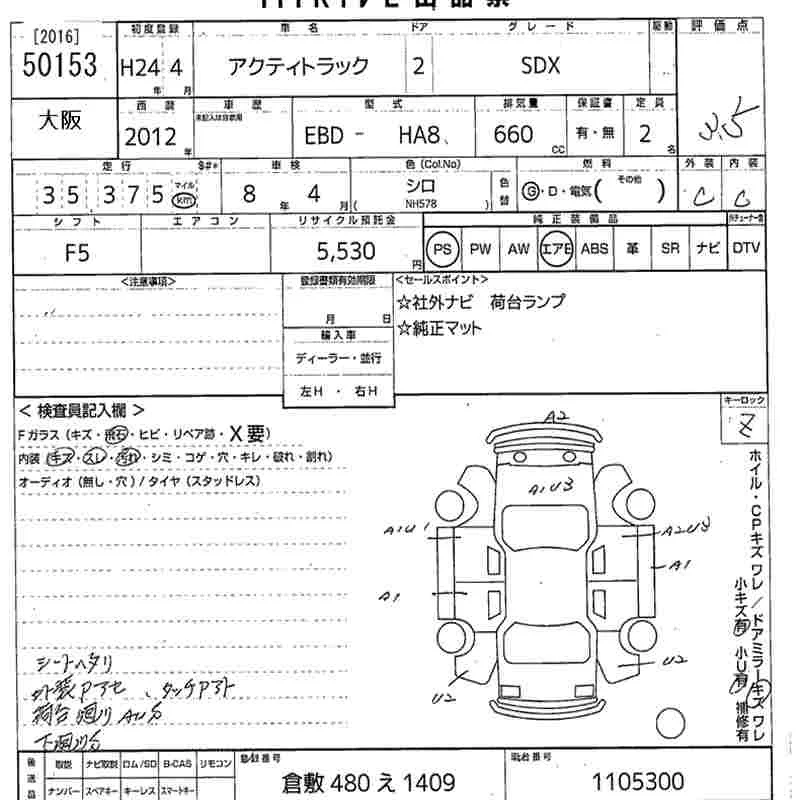 [2016]
50153
初度登録 車名 ドア グレード 駆動 評価点
H24年 4月 アクティトラック 2 SDX
3.5
大阪
西暦 車歴 型式 排気量 保証書 定員
未記入は自家用
2012年 EBD - HA8 660 CC 有・無 2名
走行 車検 色(Col.No) 燃料 外装 内装
35,375 マイル km 8年 4月 シロ 色替 G・D・電気( その他 ) C C
( NH578 )
シフト エアコン リサイクル預託金 純正装備品
F5 5,530円 PS PW AW エアB ABS 革 SR ナビ DTV
<注意事項> 登録書類有効期限 <セールスポイント>
月 日
☆社外ナビ 荷台ランプ
☆純正マット
輸入車
ディーラー・並行
左H ・ 右H
キーロック
< 検査員記入欄 >
Fガラス(キズ・飛石・ヒビ・リペア跡・X要)
内装(キズ・スレ・汚れ・シミ・コゲ・穴・キレ・破れ・割れ)
オーディオ(無し・穴)/タイヤ(スタッドレス)
A2
A1U3
A1U1
A2U3
A1
A1
U2
U2
ホイル・CPキズ ワレ/ドアミラーキズ ワレ
小キズ有 小U有 補修有
シートヘタリ
後送品 取説 ナビ取説 ロム/SD B-CAS リモコン 登録番号 車台番号
ナンバー スペアキー キーレス スマートキー
倉敷 480 え 1409 1105300